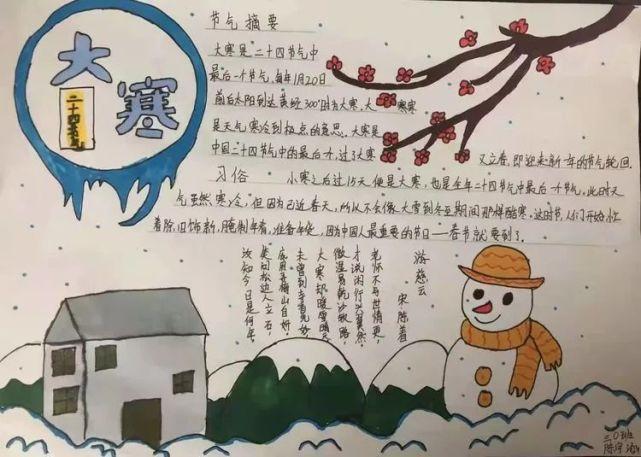 大寒
二十四节气
节气摘要
大寒是二十四节气中
最后一个节气,每年1月20日
前后太阳到达黄经300°时为大寒,大寒寒
是天气寒冷到极点的意思。大寒是
中国二十四节气中的最后一个,过了大寒
又立春,即迎来新一年的节气轮回.
习俗 小寒之后过15天便是大寒,也是全年二十四节气中最后一个节气,此时天
气虽然寒冷,但因为已近春天,所以不会像大雪到冬至期间那样酷寒。这时节,人们开始忙
着除旧饰新,腌制年肴,准备年货,因为中国人最重要的节日——春节就要到了.
游慈云
宋陈著
老怀不与世情更,
才说闲行兴翼然。
微湿易乾沙软路,
大寒却暖雪晴天。
未曾到寺香先妙,
底用寻梅山自好。
问松边人立石,
汝知今日是何年。
班
陈宇